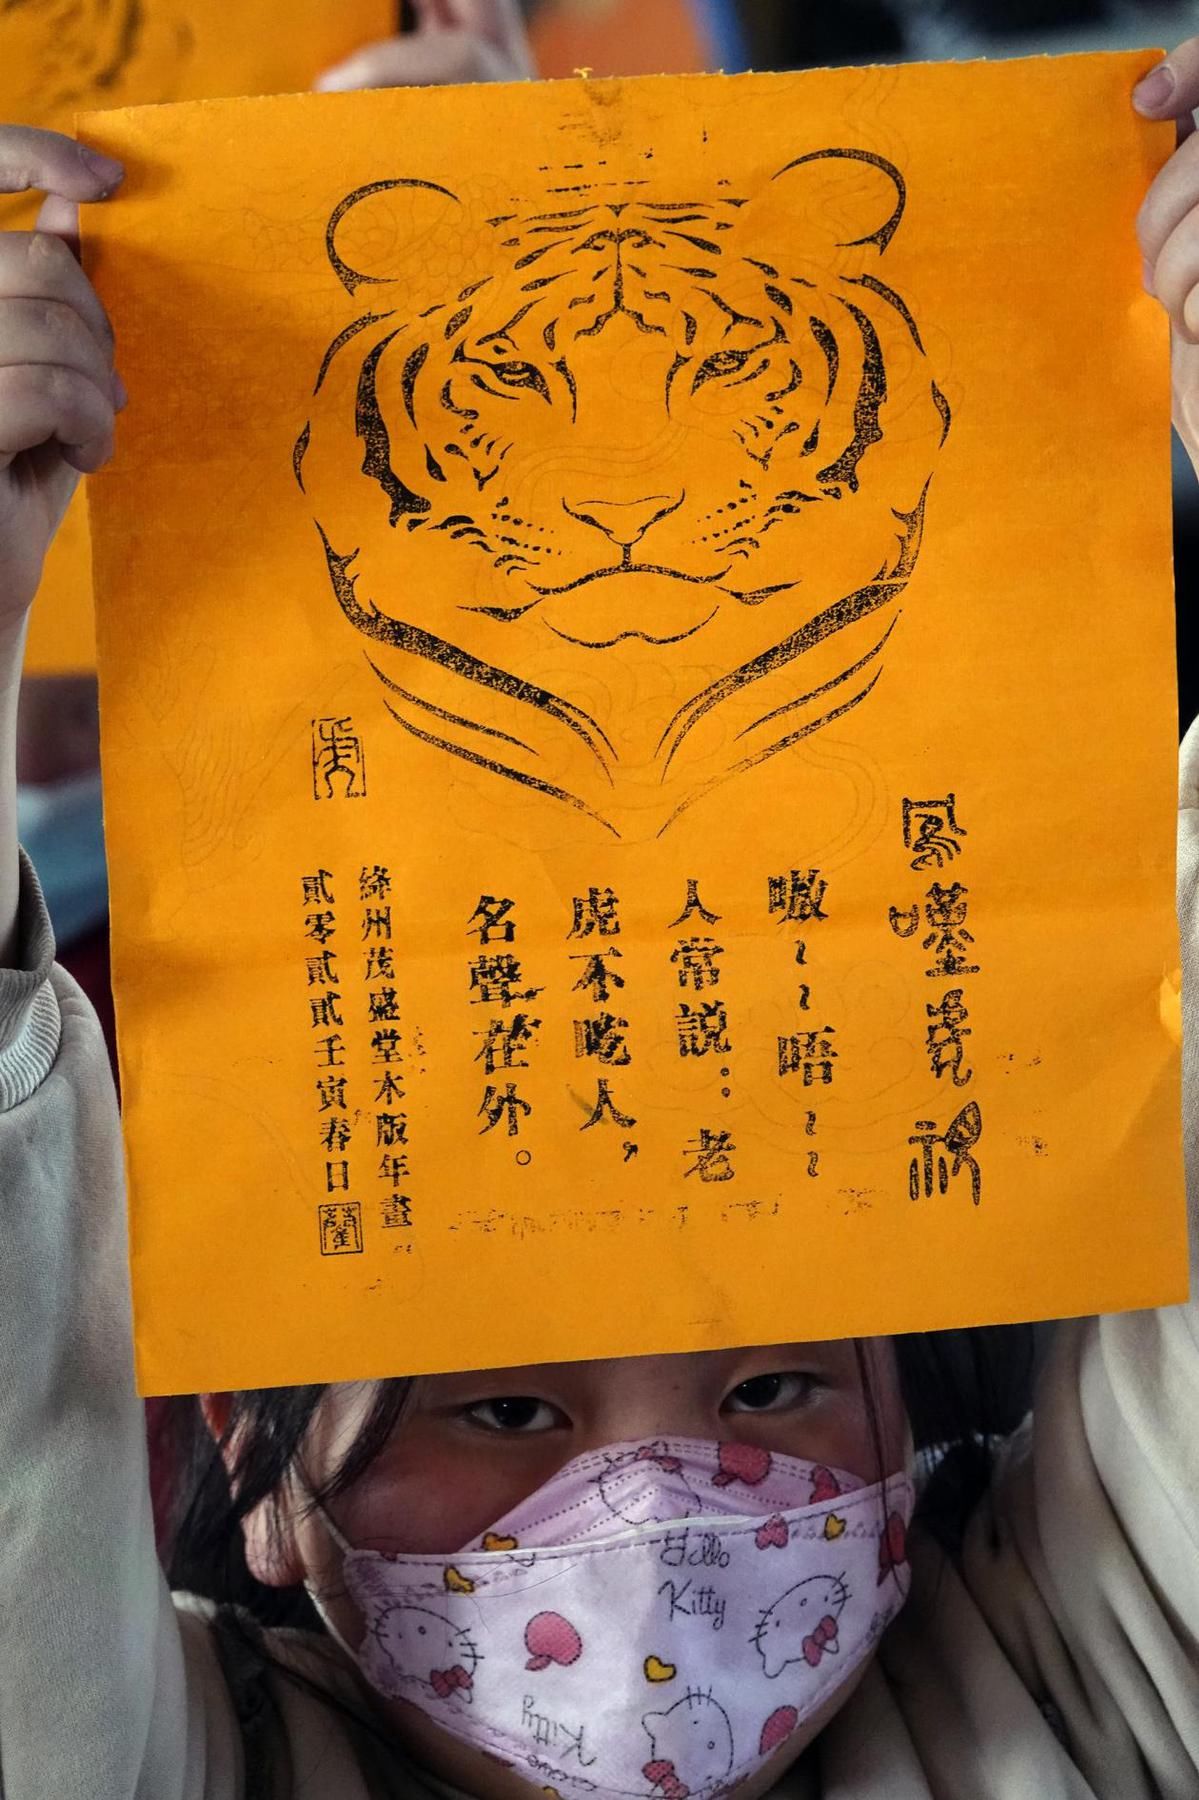 嗷~~唔~~
人常説：老
虎不吃人，
名聲茬外。
絳州茂盛堂木版年畫
貳零貳貳壬寅春日
Hello
Kitty
Kitty